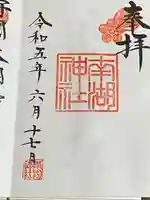 奉拝
南湖
神社
令和五年六月十七日